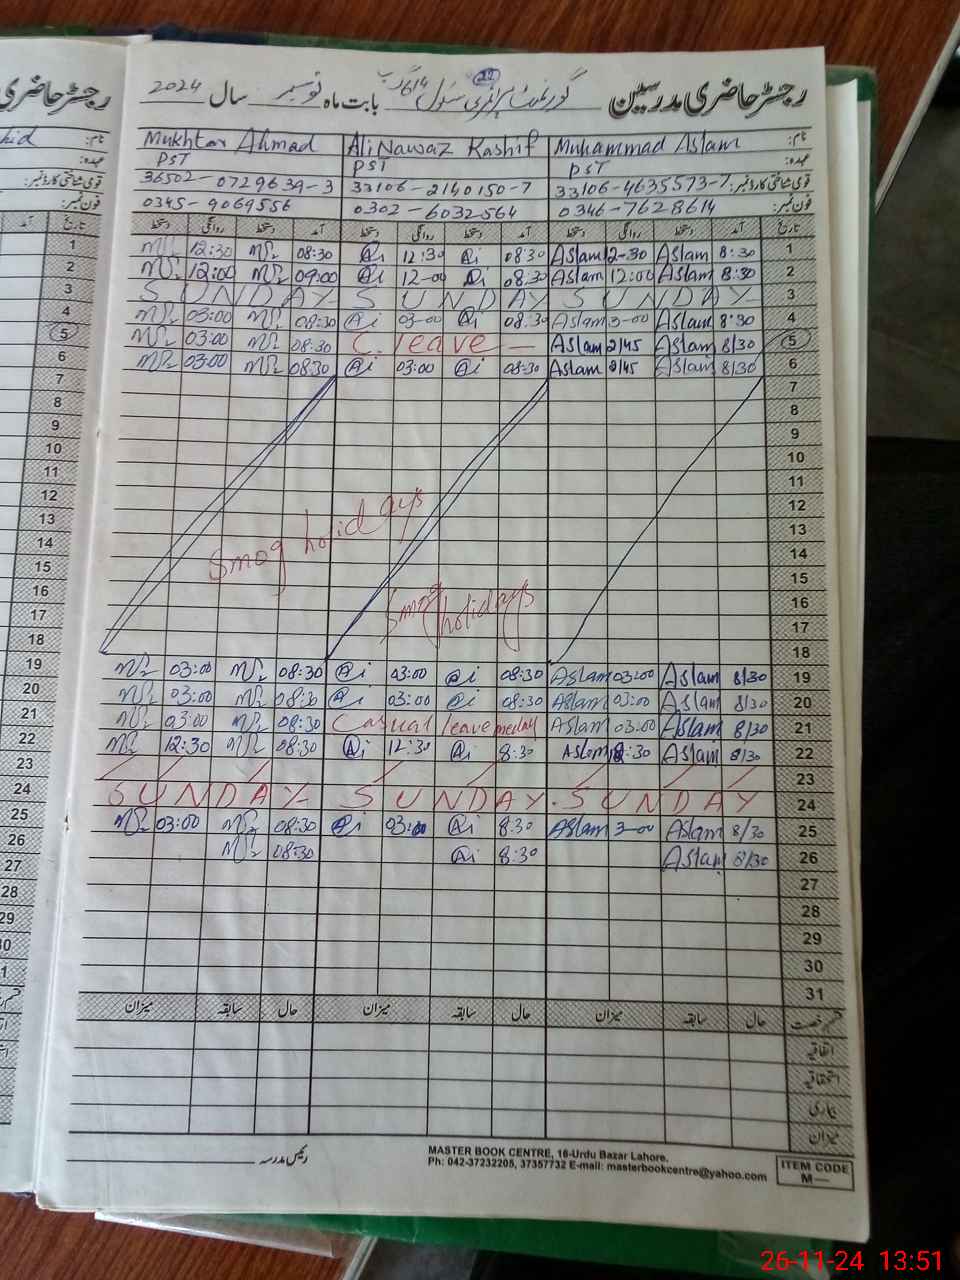 رجسٹر حاضری مدرسین گورنمنٹ پرائمری سکول 614 گ ب بابت ماہ نومبر سال 2024
22
نام: Mukhtar Ahmad Ali Nawaz Kashif Muhammad Aslam
عہدہ: PST PST PST
قومی شناختی کارڈ نمبر: 36502-0729639-3 33106-2140150-7 33106-4635573-7
فون نمبر: 0345-9069556 0302-6032564 0346-7628614
دستخط روانگی دستخط آمد دستخط روانگی دستخط آمد دستخط روانگی دستخط آمد تاریخ
1 12:30 08:30 12:30 08:30 Aslam 12-30 Aslam 8:30 1
2 12:00 09:00 12-00 08:30 Aslam 12:00 Aslam 8:30 2
3 SUNDAY SUNDAY SUNDAY 3
4 03:00 08:30 03-00 08:30 Aslam 3-00 Aslam 8:30 4
5 03:00 08:30 C. leave Aslam 2/45 Aslam 8/30 5
6 03:00 08:30 03:00 08:30 Aslam 2/45 Aslam 8/30 6
7 7
8 8
9 9
10 10
11 11
12 12
13 Smog holidays 13
14 14
15 15
16 Smog holidays 16
17 17
18 18
19 03:00 08:30 03:00 08:30 Aslam 03:00 Aslam 8/30 19
20 03:00 08:30 03:00 08:30 Aslam 03:00 Aslam 8/30 20
21 03:00 08:30 Casual leave Aslam 03:00 Aslam 8/30 21
22 12:30 08:30 12:30 8:30 Aslam 12:30 Aslam 8/30 22
23 23
24 SUNDAY SUNDAY SUNDAY 24
25 03:00 08:30 03:00 8:30 Aslam 3-00 Aslam 8/30 25
26 08:30 8:30 Aslam 8/30 26
27 27
28 28
29 29
30 30
31 31
میزان سابقہ حال میزان سابقہ حال میزان سابقہ حال قسم رخصت
اتفاقیہ
استحقاقیہ
بیماری
میزان
رئیس مدرسہ
MASTER BOOK CENTRE, 16-Urdu Bazar Lahore.
Ph: 042-37232205, 37357732 E-mail: masterbookcentre@yahoo.com
ITEM CODE
M—
26-11-24 13:51